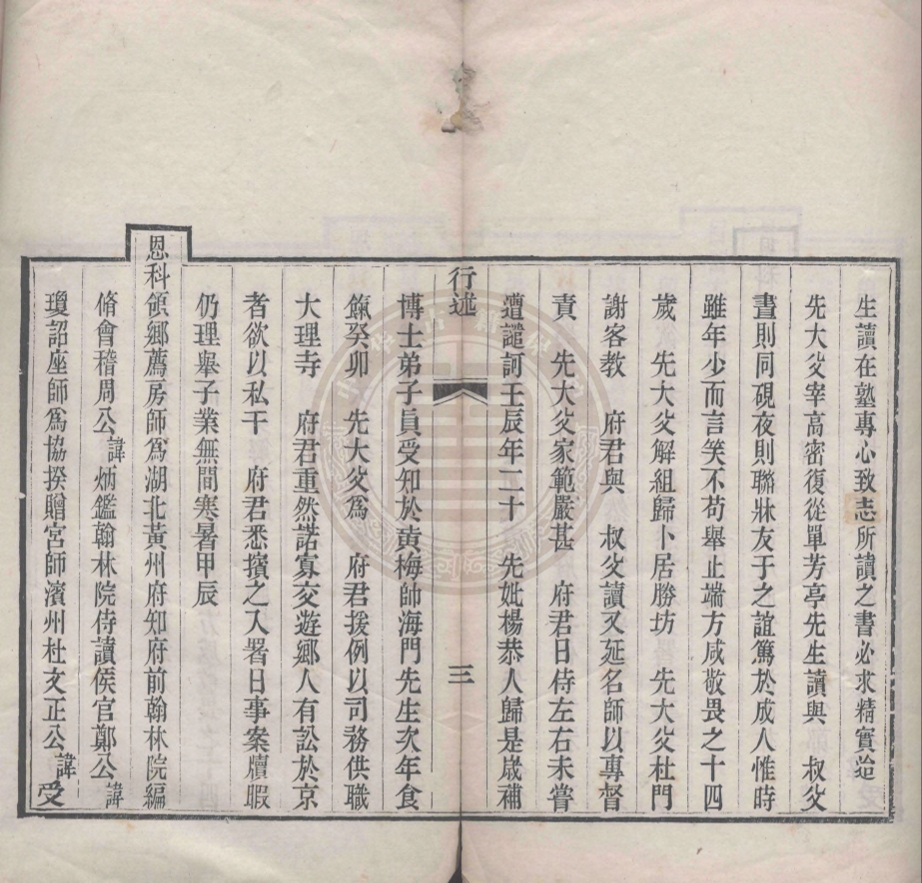 生讀在塾專心致志所讀之書必求精實迨
先大父宰高密復從單芳亭先生讀與　叔父
晝則同硯夜則聯牀友于之誼篤於成人惟時
雖年少而言笑不苟舉止端方咸敬畏之十四
歲　先大父解組歸卜居勝坊　先大父杜門
謝客教　府君與　叔父讀又延名師以專督
責　先大父家範嚴甚　府君日侍左右未嘗
遭譴訶壬辰年二十　先妣楊恭人歸是歲補
行述　三
博士弟子員受知於黄梅帥海門先生次年食
餼癸卯　先大父爲　府君援例以司務供職
大理寺　府君重然諾寡交遊鄉人有訟於京
者欲以私干　府君悉擯之入署日事案牘暇
仍理舉子業無間寒暑甲辰
恩科領鄉薦房師爲湖北黄州府知府前翰林院編
脩會稽周公諱炳鑑翰林院侍讀侯官鄭公諱
瓊詔座師爲協揆贈宮師濱州杜文正公諱受